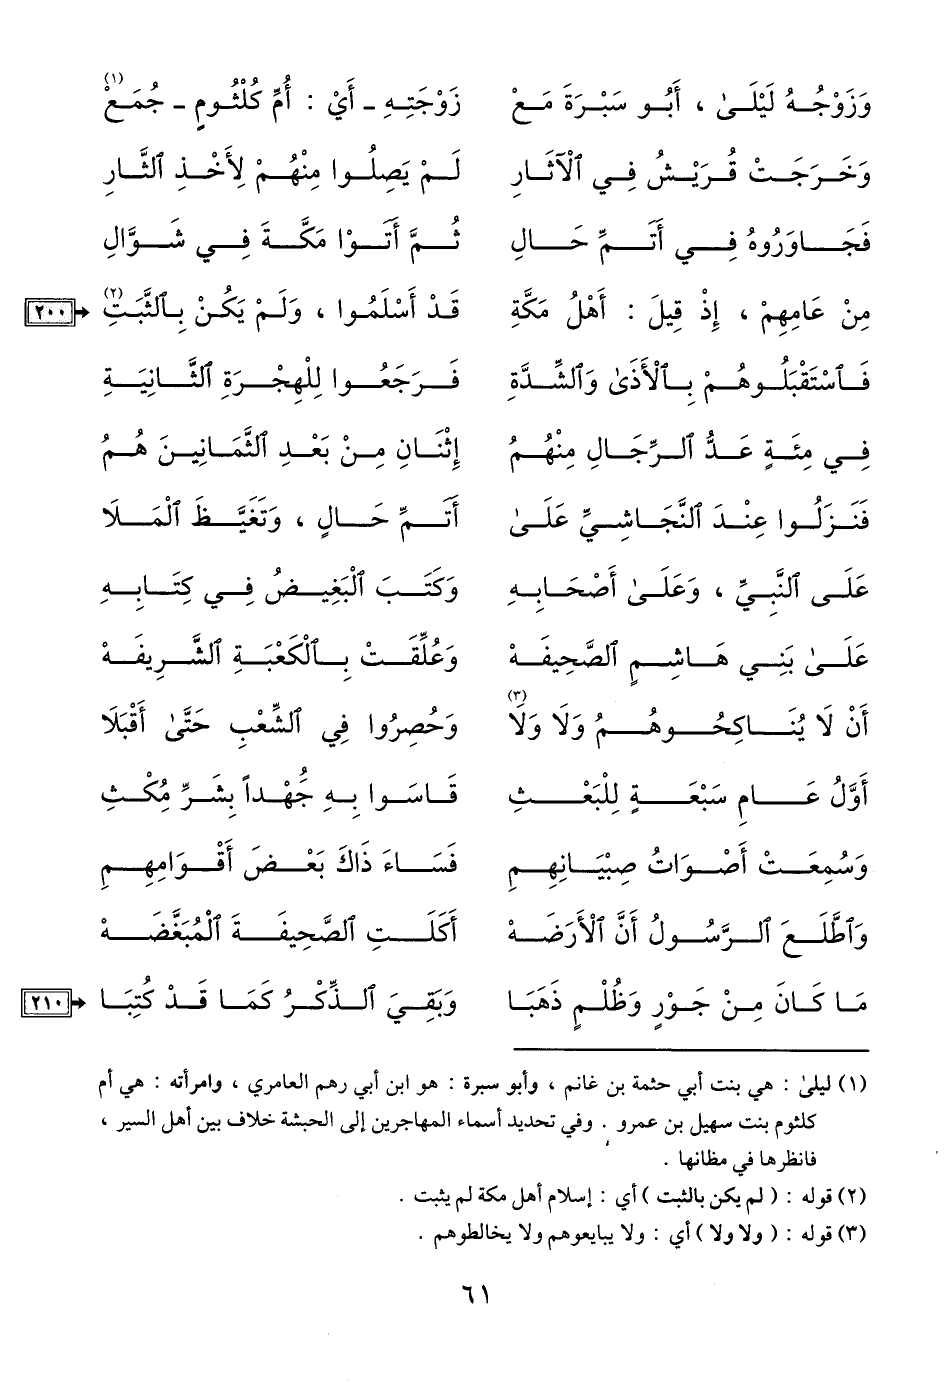 وَزَوْجُهُ لَيْلَىٰ ، أَبُو سَبْرَةَ مَعْ زَوْجَتِهِ - أَيْ : أُمِّ كُلْثُومٍ - جُمَعْ(١)
وَخَرَجَتْ قُرَيْشُ فِي ٱلْآثَارِ لَمْ يَصِلُوا مِنْهُمْ لِأَخْذِ ٱلثَّارِ
فَجَاوَرُوهُ فِي أَتَمِّ حَالِ ثُمَّ أَتَوْا مَكَّةَ فِي شَوَّالِ
مِنْ عَامِهِمْ ، إِذْ قِيلَ : أَهْلُ مَكَّةِ قَدْ أَسْلَمُوا ، وَلَمْ يَكُنْ بِٱلثَّبَتِ(٢) ٢٠٠
فَٱسْتَقْبَلُوهُمْ بِٱلْأَذَىٰ وَٱلشِّدَّةِ فَرَجَعُوا لِلْهِجْرَةِ ٱلثَّانِيَةِ
فِي مِئَةٍ عَدُّ ٱلرِّجَالِ مِنْهُمُ إِثْنَانِ مِنْ بَعْدِ ٱلثَّمَانِينَ هُمُ
فَنَزَلُوا عِنْدَ ٱلنَّجَاشِيِّ عَلَىٰ أَتَمِّ حَالٍ ، وَتَغَيَّظَ ٱلْمَلَا
عَلَى ٱلنَّبِيِّ ، وَعَلَىٰ أَصْحَابِهِ وَكَتَبَ ٱلْبَغِيضُ فِي كِتَابِهِ
عَلَىٰ بَنِي هَاشِمٍ ٱلصَّحِيفَهْ وَعُلِّقَتْ بِٱلْكَعْبَةِ ٱلشَّرِيفَهْ
أَنْ لَا يُنَاكِحُوهُمُ وَلَا وَلَا(٣) وَحُصِرُوا فِي ٱلشِّعْبِ حَتَّىٰ أَقْبَلَا
أَوَّلُ عَامِ سَبْعَةٍ لِلْبَعْثِ قَاسَوا بِهِ جَُهْداً بِشَرِّ مِكْثِ
وَسُمِعَتْ أَصْوَاتُ صِبْيَانِهِمِ فَسَاءَ ذَاكَ بَعْضَ أَقْوَامِهِمِ
وَٱطَّلَعَ ٱلرَّسُولُ أَنَّ ٱلْأَرَضَهْ أَكَلَتِ ٱلصَّحِيفَةَ ٱلْمُبَغَّضَهْ
مَا كَانَ مِنْ جَوْرٍ وَظُلْمٍ ذَهَبَا وَبَقِيَ ٱلذِّكْرُ كَمَا قَدْ كُتِبَا ٢١٠
(١) ليلىٰ : هي بنت أبي حثمة بن غانم ، وأبو سبرة : هو ابن أبي رهم العامري ، وامرأته : هي أم
كلثوم بنت سهيل بن عمرو . وفي تحديد أسماء المهاجرين إلى الحبشة خلاف بين أهل السير ،
فانظرها في مظانها .
(٢) قوله : ( لم يكن بالثبت ) أي : إسلام أهل مكة لم يثبت .
(٣) قوله : ( ولا ولا ) أي : ولا يبايعوهم ولا يخالطوهم .
٦١